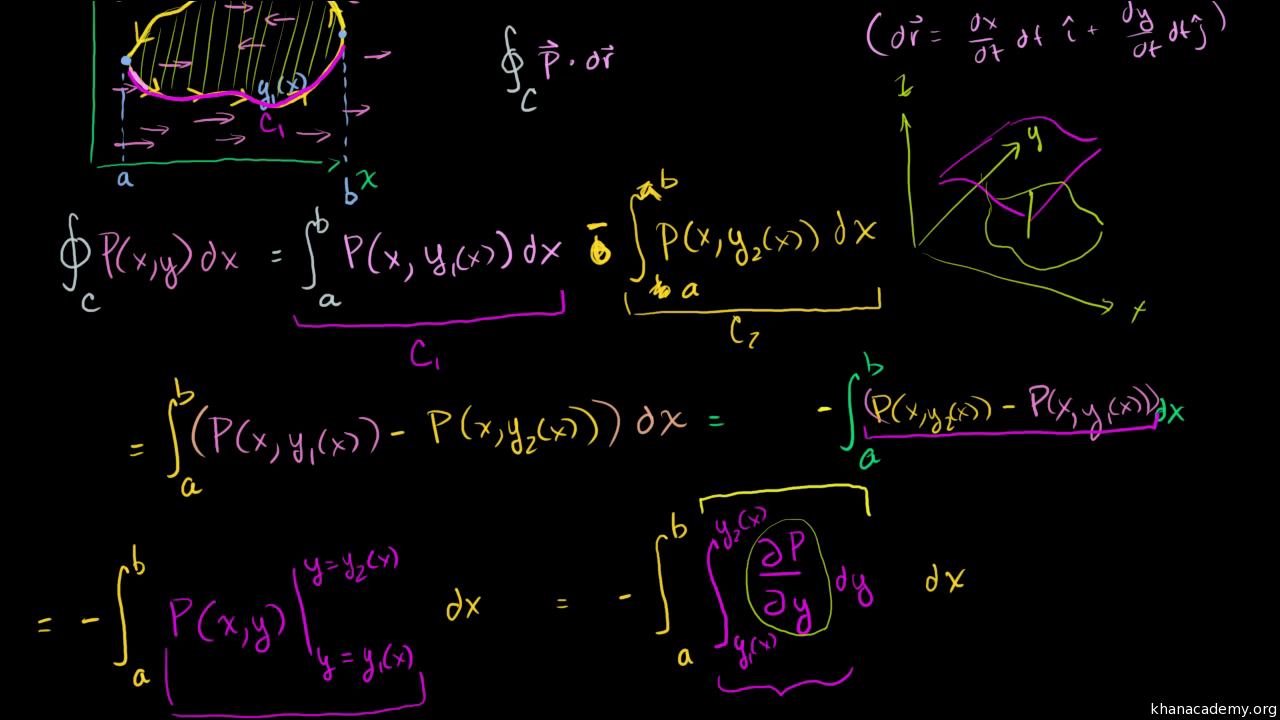 ∮_C P⃗ · dr⃗
(dr⃗ = dx/dt dt î + dy/dt dt ĵ)
y₁(x)
C₁
a b x
z
y
x
∮_C P(x,y) dx = ∫_a^b P(x, y₁(x)) dx - ∫_a^b P(x, y₂(x)) dx
C₁ C₂
= ∫_a^b (P(x, y₁(x)) - P(x, y₂(x))) dx = - ∫_a^b (P(x, y₂(x)) - P(x, y₁(x))) dx
= - ∫_a^b P(x,y) |_{y = y₁(x)}^{y = y₂(x)} dx = - ∫_a^b ∫_{y₁(x)}^{y₂(x)} ∂P/∂y dy dx
khanacademy.org